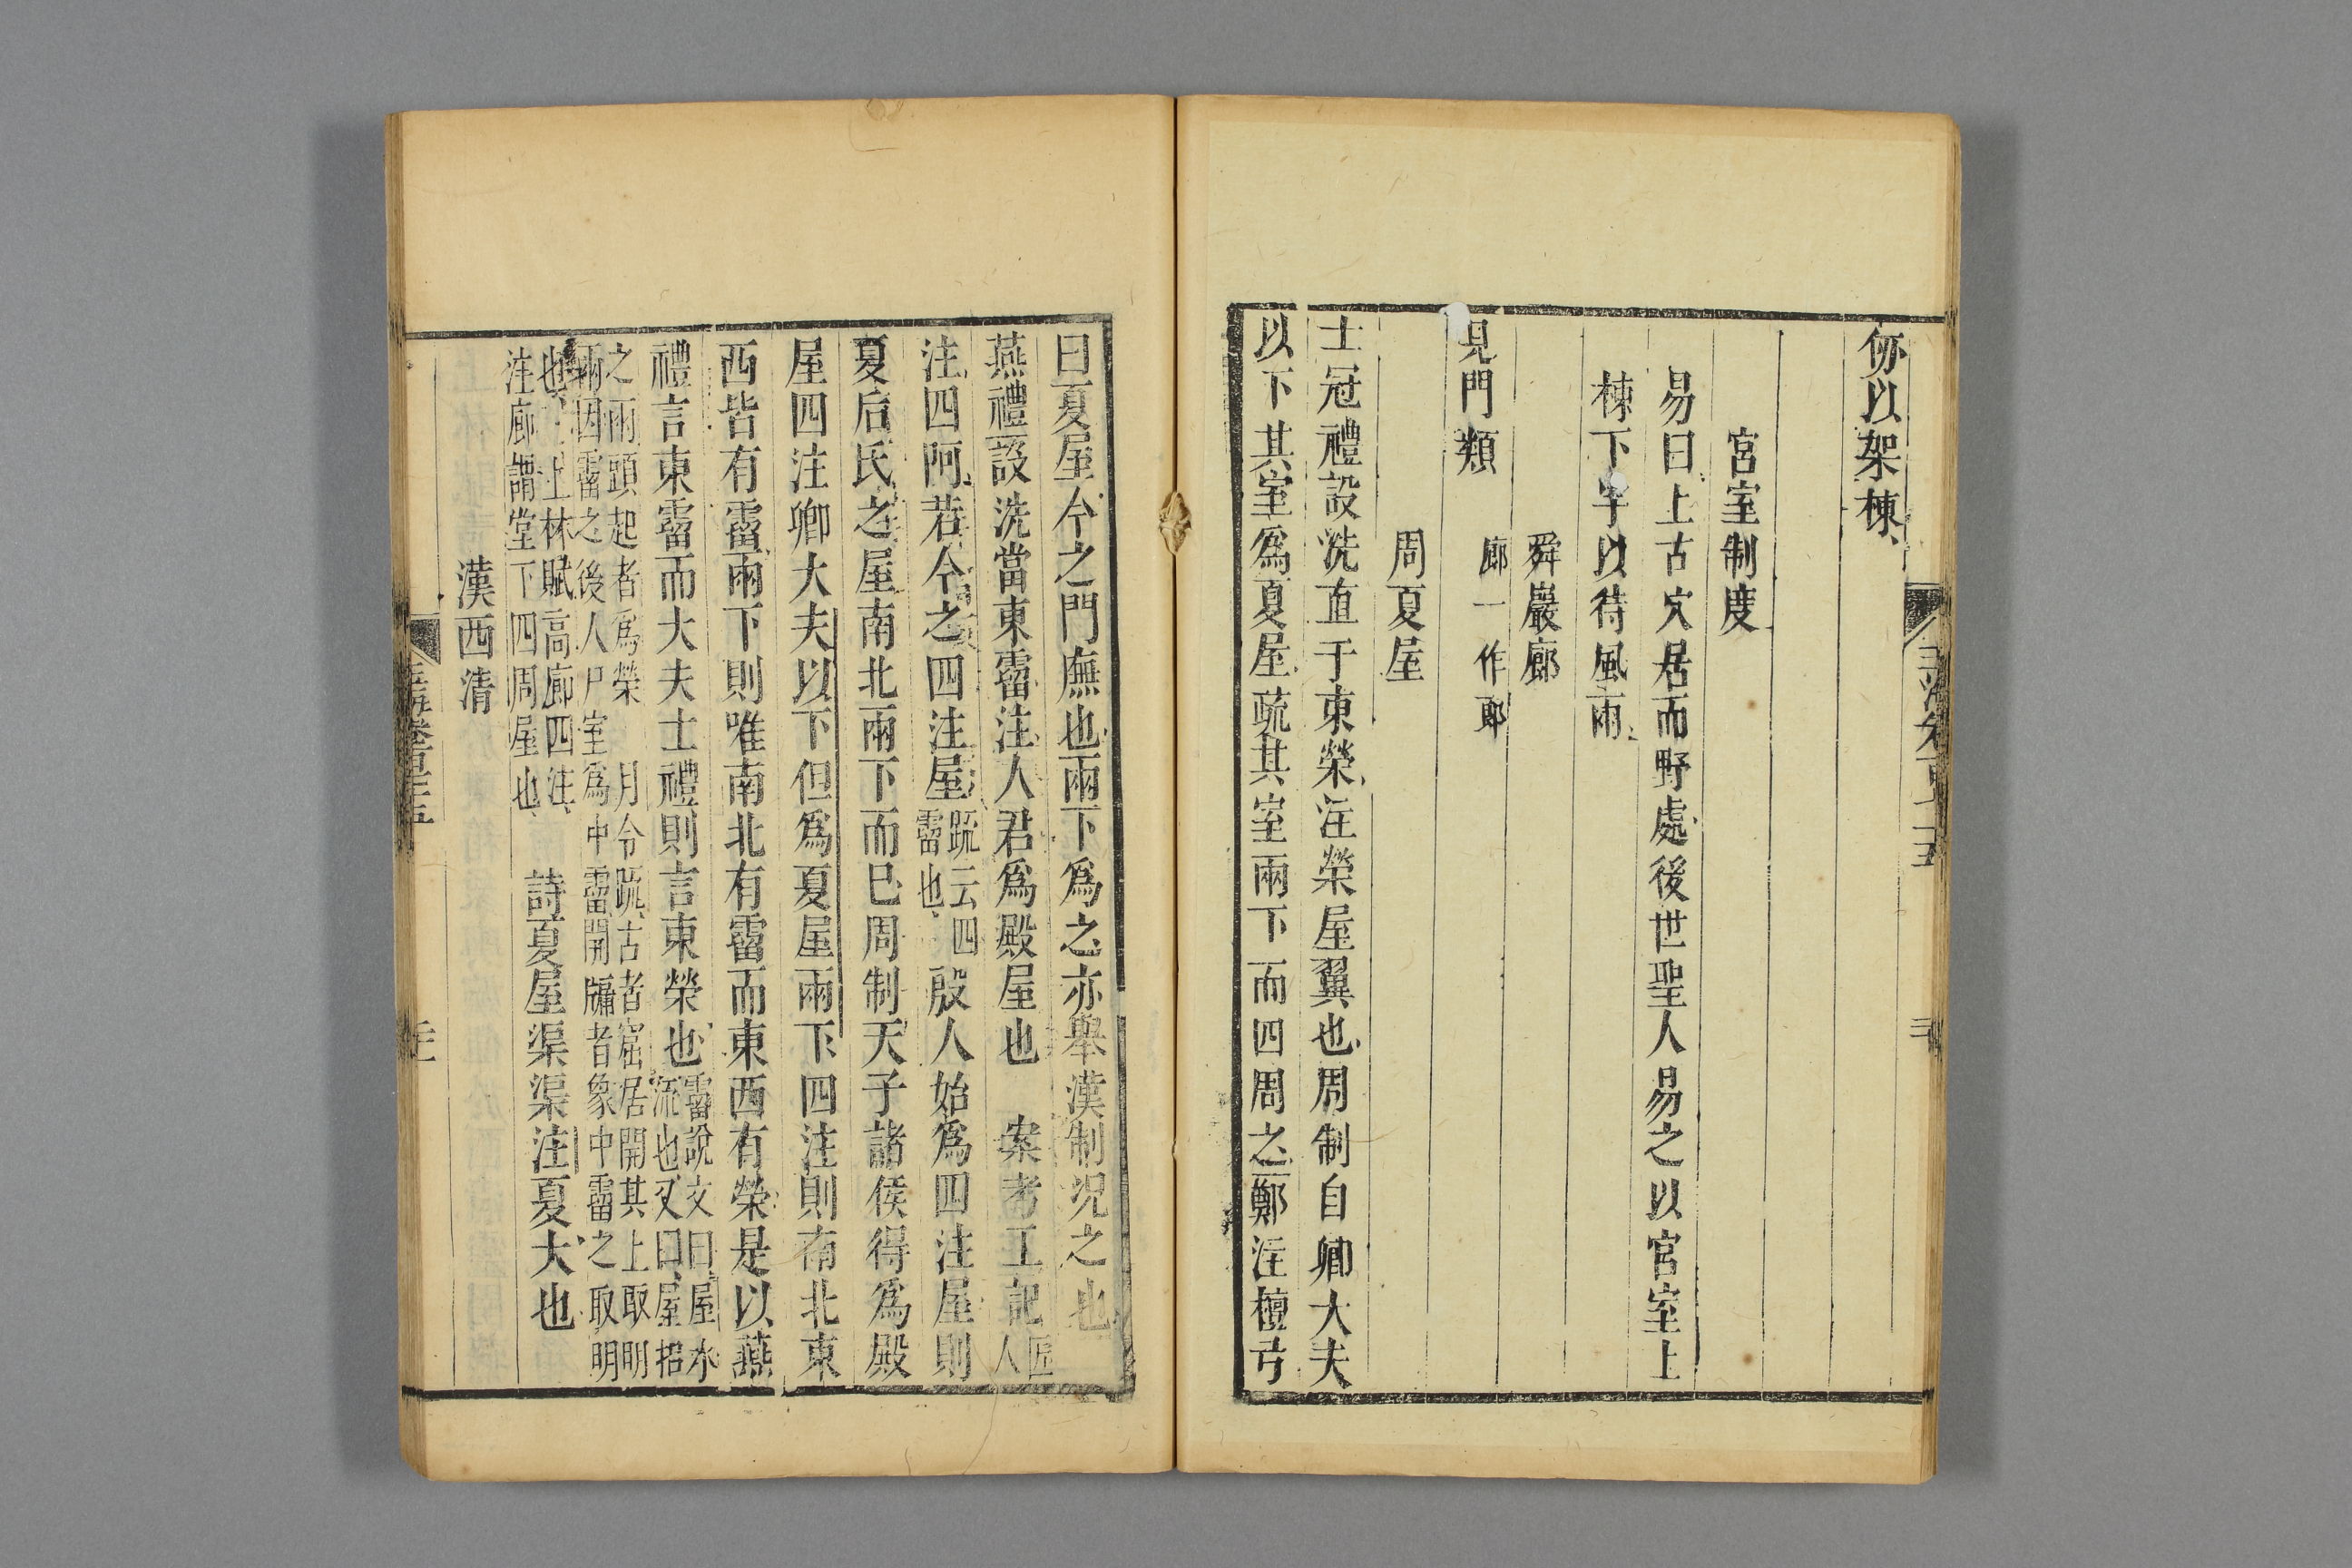 仞以架棟
宮室制度
易曰上古穴居而野處後世聖人易之以宮室上
棟下宇以待風雨
舜巖廊
廊一作郎
見門類
周夏屋
士冠禮設洗直于東榮注榮屋翼也周制自卿大夫
以下其室爲夏屋疏其室兩下而四周之鄭注檀弓
曰夏屋今之門廡也兩下爲之亦舉漢制況之也
燕禮設洗當東霤注人君爲殿屋也 案考工記匠人
注四阿若今之四注屋疏云四霤也 殷人始爲四注屋則
夏后氏之屋南北兩下而已周制天子諸侯得爲殿
屋四注卿大夫以下但爲夏屋兩下四注則南北東
西皆有霤兩下則唯南北有霤而東西有榮是以燕
禮言東霤而大夫士禮則言東榮也霤說文曰屋水流也又曰屋梠
之兩頭起者爲榮 月令疏古者窟居開其上取明
雨因霤之後人尸室爲中霤開牖者象中霤之取明
也 上林賦高廊四注
注廊謂堂下四周屋也 詩夏屋渠渠注夏大也
漢西清